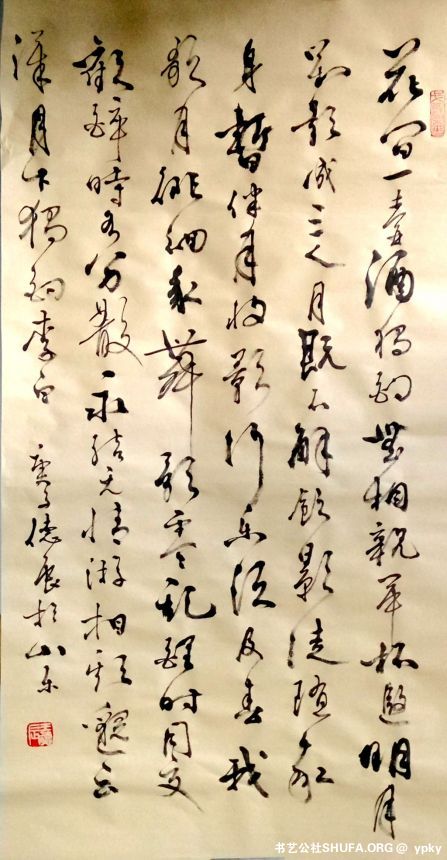 花间一壶酒独酌無相親举杯邀明月
對影成三人月既不解飲影徒随我
身暫伴月将影行乐须及春我
歌月徘徊我舞影零乱醒时同交
歡醉时各分散永结无情游相期邈云
漢月下独酌李白 德展於山东
书艺公社SHUFA.ORG @ ypky